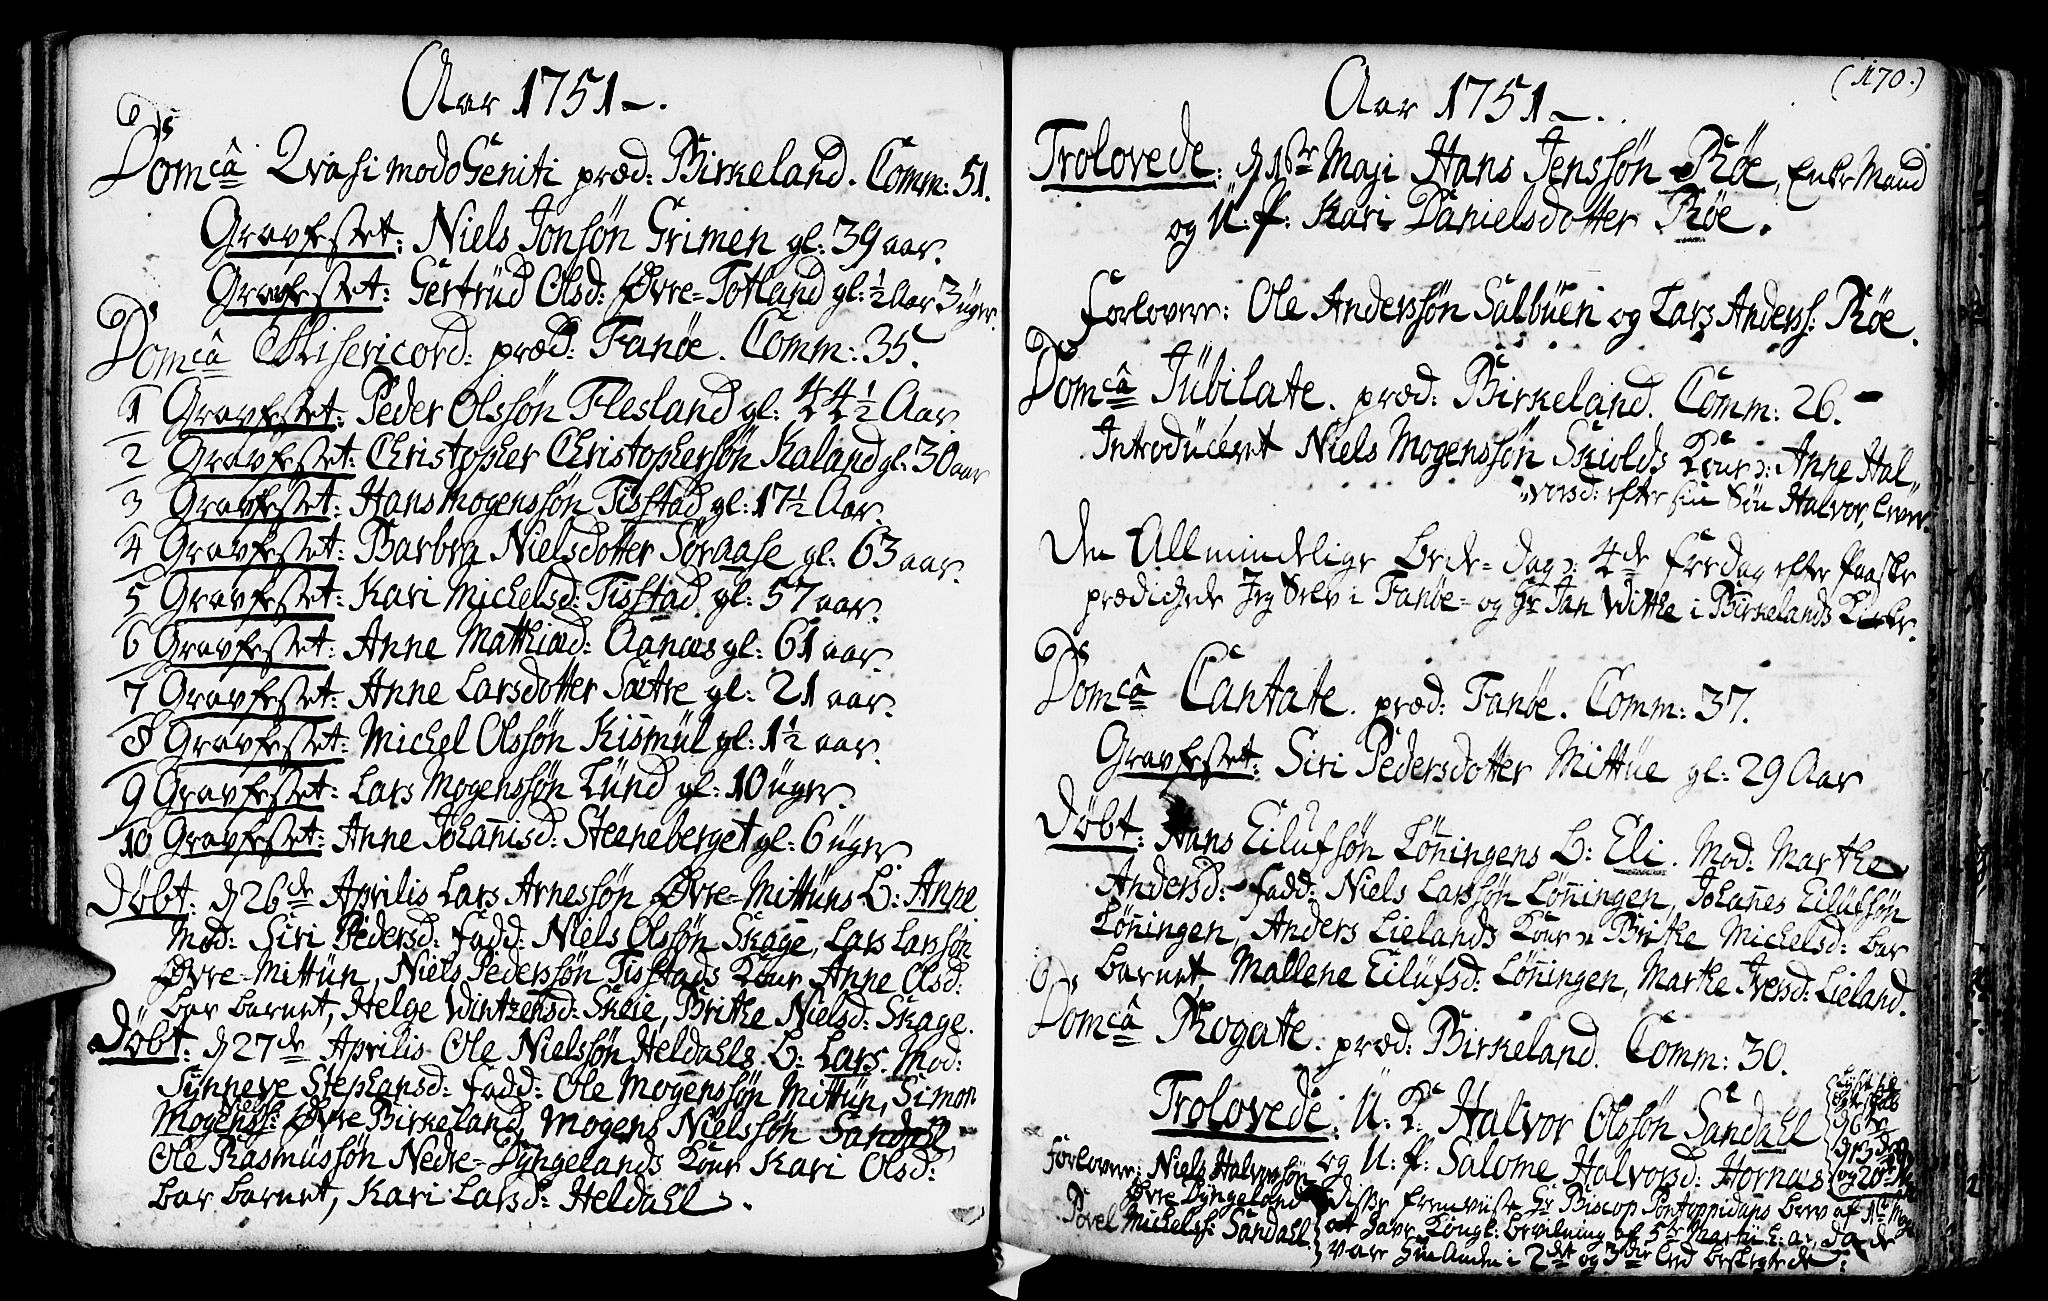 Aar 1751.
Domcâ Qvasimodo Geniti præd: Birkeland. Comm: 51.
Gravfestet: Niels Jonsøn Grimen gl: 39 aar.
Gravfestet: Gertrüd Olsd: Øvre-Totland gl: ½ Aar 3 üger.
Domcâ Misericord: præd: Fanöe. Comm: 35.
1 Gravfestet: Peder Olssøn Flesland gl: 44½ Aar.
2 Gravfestet: Christopher Christophersøn Kaland gl: 30 aar
3 Gravfestet: Hans Mogenssøn Tisstad gl: 17½ Aar.
4 Gravfestet: Barbra Nielsdotter Søraase gl: 63 aar.
5 Gravfestet: Kari Michelsd: Tisstad gl: 57 aar.
6 Gravfestet: Anne Mathiæd: Aanæs gl: 61 aar.
7 Gravfestet: Anne Larsdotter Sætre gl: 21 aar.
8 Gravfestet: Michel Olssøn Kismül gl: 1½ aar.
9 Gravfestet: Lars Mogenssøn Lünd gl: 10 üger.
10 Gravfestet: Anne Johanisd: Steeneberget gl: 6 üger
Døbt: d 26de Aprilis Lars Arnessøn Øvre-Mittüns B: Anne
Mod: Siri Pedersd: Fadd: Niels Olssøn Skage, Lars Larssøn
Øvre-Mittün, Niels Pederssøn Tisstads Kone Anne Olsd:
bar barnet, Helge Wintzensd: Skeie, Brithe Nielsd: Skage.
Døbt: d 27de Aprilis Ole Nielssøn Heldahls B: Lars. Mod:
Synneve Stephansd: Fadd: Ole Mogenssøn Mittün, Simon
Mogenss: Øvre Birkeland, Mogens Nielssøn Sandahl,
Ole Rasmüssøn Nedre-Dyngelands Kone Kari Olsd:
bar barnet, Kari Larsd: Heldahl.
(170.)
Aar 1751.
Trolovede: d 1ste Maji Hans Jenssøn Røe, Enke Mand
og U: P: Kari Danielsdotter Røe.
Forlovere: Ole Anderssøn Salbüen og Lars Anderss: Røe.
Domcâ Jübilate. præd: Birkeland. Comm: 26.
Introdüceret Niels Mogenssøn Skiolds Kone: Anne Hal-
vorsd: efter sin Søn Halvor,
Den Allmindelige Bede-dag: 4de Fredag efter Paaske
prædichede Jeg Selv i Fanöe- og Hr Jan Withe i Birkelands Kirke.
Domcâ Cantate. præd: Fanöe. Comm: 37.
Gravfestet: Siri Pedersdotter Mittüe gl: 29 Aar
Døbt: Hans Eilufsøn Løningens B: Eli. Mod: Marthe
Andersd: Fadd: Niels Larssøn Løningen, Johanes Eilüfsøn
Løningen, Anders Lielands Kone: Brithe Michelsd: bar
barnet, Mallene Eilüfsd: Løningen, Marthe Iversd: Lieland.
Domcâ Rogate. præd: Birkeland. Comm: 30.
Trolovede: U: K: Halvor Olssøn Sandahl
og U: P: Salome Halvorsd: Hornæs
Forlovere: Niels Halvorssøn
Øvre Dyngeland
Povel Michelss: Sandahl.
Disse fremviiste Hr Biscop Pontoppidans brev af 1te Maji
at have Kongl: bevilning af 5te Martii h: a:, da de
vare hinanden i 2det og 3die led beslegtede: